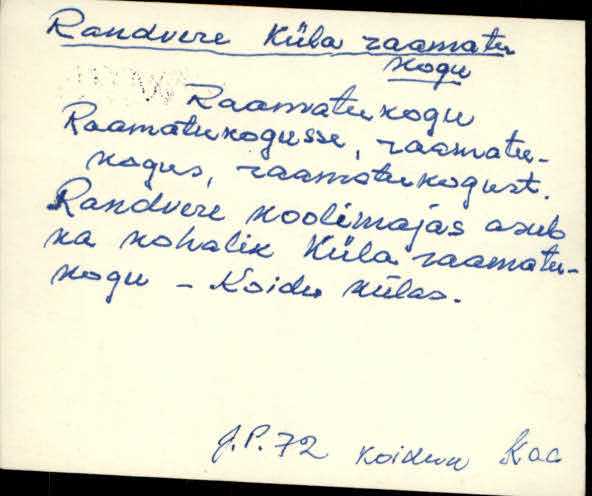 Randvere Küla raamatu
kogu
Raamatukogu
Raamatukogusse, raamatu-
kogus, raamatukogust.
Randvere koolimajas asub
ka kohalik Küla raamatu-
kogu - Koidu külas.
J.P. 72 Koidu Kaa